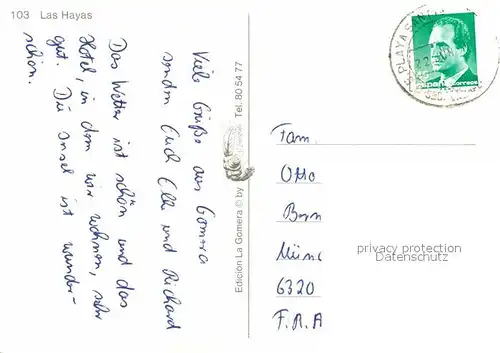 103 Las Hayas
Viele Grüße aus Gomera
senden Euch Elke und Richard
Das Wetter ist schön und das
Hotel, in dem wir wohnen, sehr
gut. Die Insel ist wunder-
schön.
Edicion La Gomera © by
Tel. 80 54 77
PLAYA S
Fam.
Otto
6320
F.R.A
privacy protection
Datenschutz